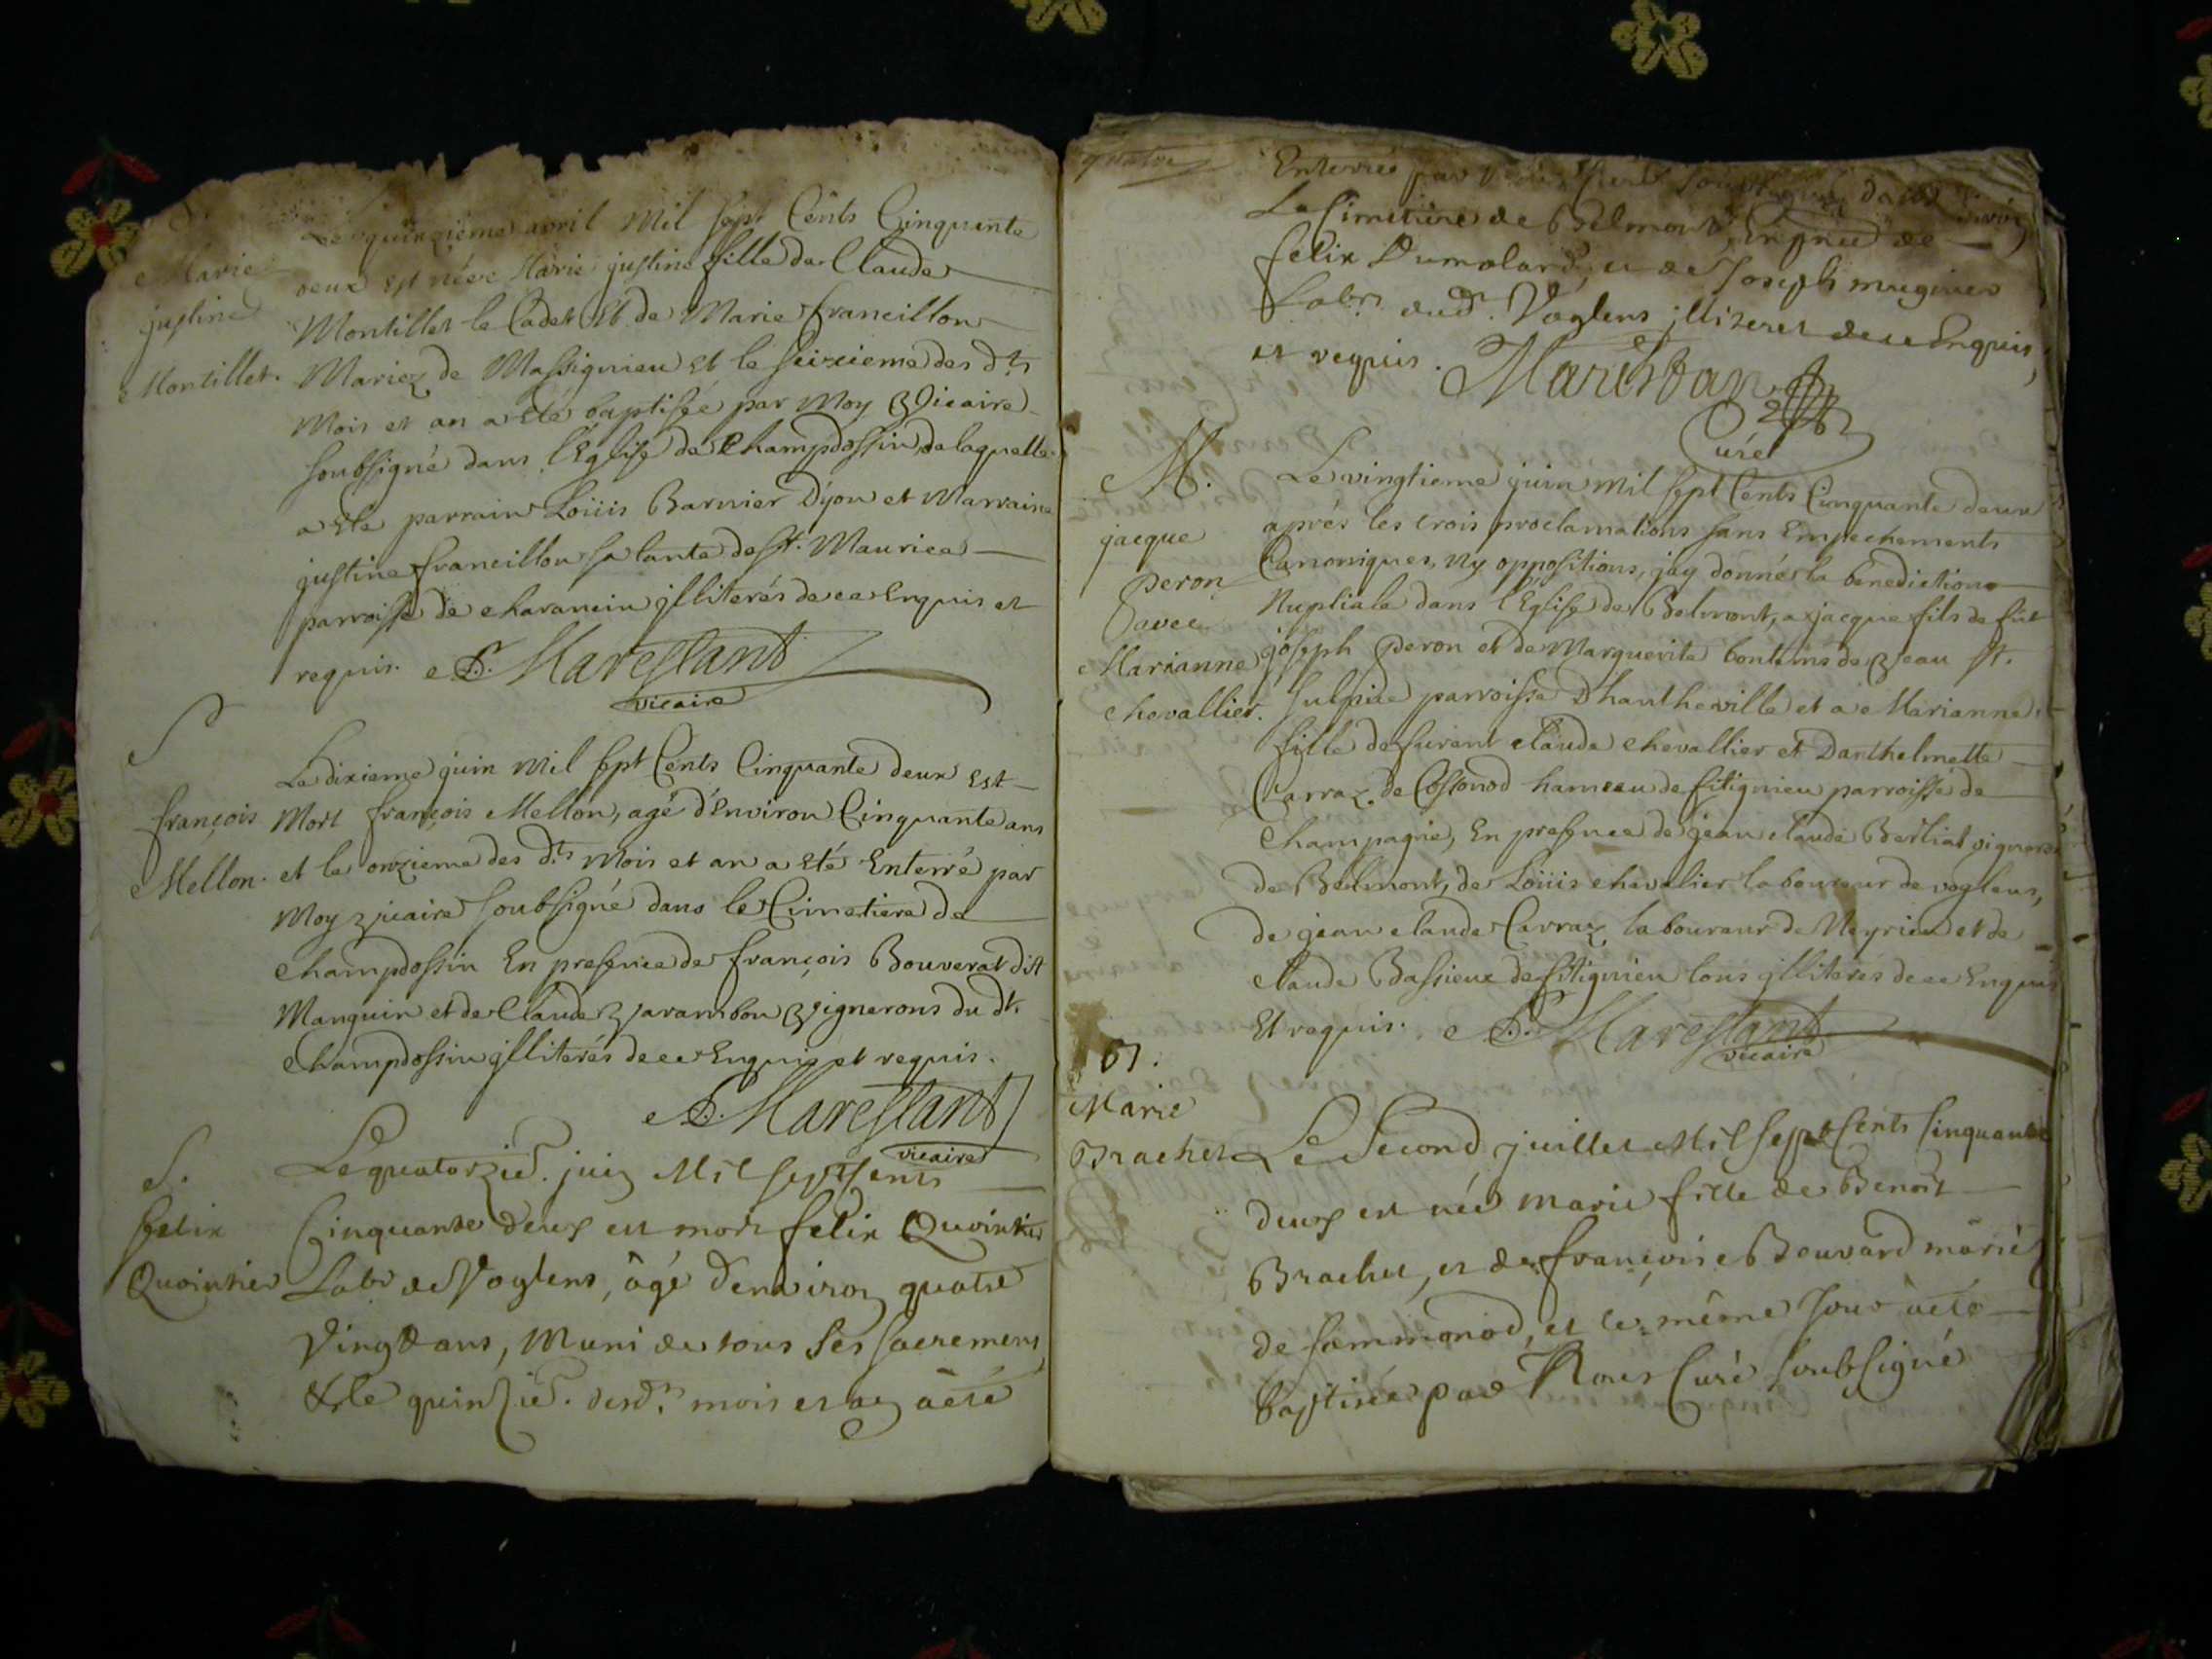 Marie
justine
Montillet.
Le quinzieme avril Mil sept Cents Cinquante
deux Est née Marie justine fille de Claude
Montillet le Cadet Et de Marie francillon
Mariez de Massignieu Et le seizieme des dts
Mois et an a Eté baptisée par Moy Vicaire
soubsigné dans l'Eglise de Champdossin, de laquelle
a Eté parrain Loüis Barnier Dyon et Marraine
justine francillon sa tante de St. Maurice
parroisse de charancin jlliterés de ce Enquis et
requis. Marestant
vicaire
S
françois
Mellon.
Le dixieme juin Mil sept Cents Cinquante deux Est
Mort françois Mellon, agé d'Environ Cinquante ans
et le onzieme des dts Mois et an a Eté Enterré par
Moy vicaire soubsigné dans le Cimetiere de
Champdossin En presence de françois Bouverat dit
Manguin et de Claude varambon vignerons du dt.
Champdossin jlliterés de ce Enquis et requis.
Marestant
vicaire
S.
felix
Quointier
Le quatorzie. juin Mil sept Cents
Cinquante deux est mort felix Quointier
Labr de Voglens, âgé d'environ quatre
Vingt ans, Muni de tous ses sacremens
& le quinzie. desd. mois et an a été
quatre
Enterré par Soubsigné dans
Le Cimetiere de Belmont En pnce de
felix Dumolard, et de Joseph mugnier
Labrs dud. Voglens jlliterer de ce Enquis,
et requis. Marestan
Curé
M.
jacque
peron
avec
Marianne
chevallier.
Le vingtieme juin Mil sept Cents Cinquante deux
aprés les trois proclamations sans Empechements
Canoniques, Ny oppositions, jay donné la benediction
Nuptiale dans l'Eglise de Belmont, a jacque fils de fut
joseph peron et de Marguerite bontems de veau St.
sulpice parroisse Dhautheville et a Marianne
fille de furent claude chevallier et Barthelmette
Carraz de Costonod hameau de fitignieu parroisse de
Champagne, En presence de jean claude Berliat vigneron
de Belmont, de Loüis chevalier laboureur de voglens,
de jean claude Carraz laboureur de Neyrieu et de
claude Bassieux de fitignieu tous jlliterés de ce Enquis
Et requis. Marestant
vicaire
B.
Marie
Brachet
Le Second juillet Mil Sept Cents Cinquante
deux est née Marie fille de Benoit
Brachet, et de françoise Bouvard mariés
de sammonod, et le même Jour a été
baptisée par Nous Curé soubsigné